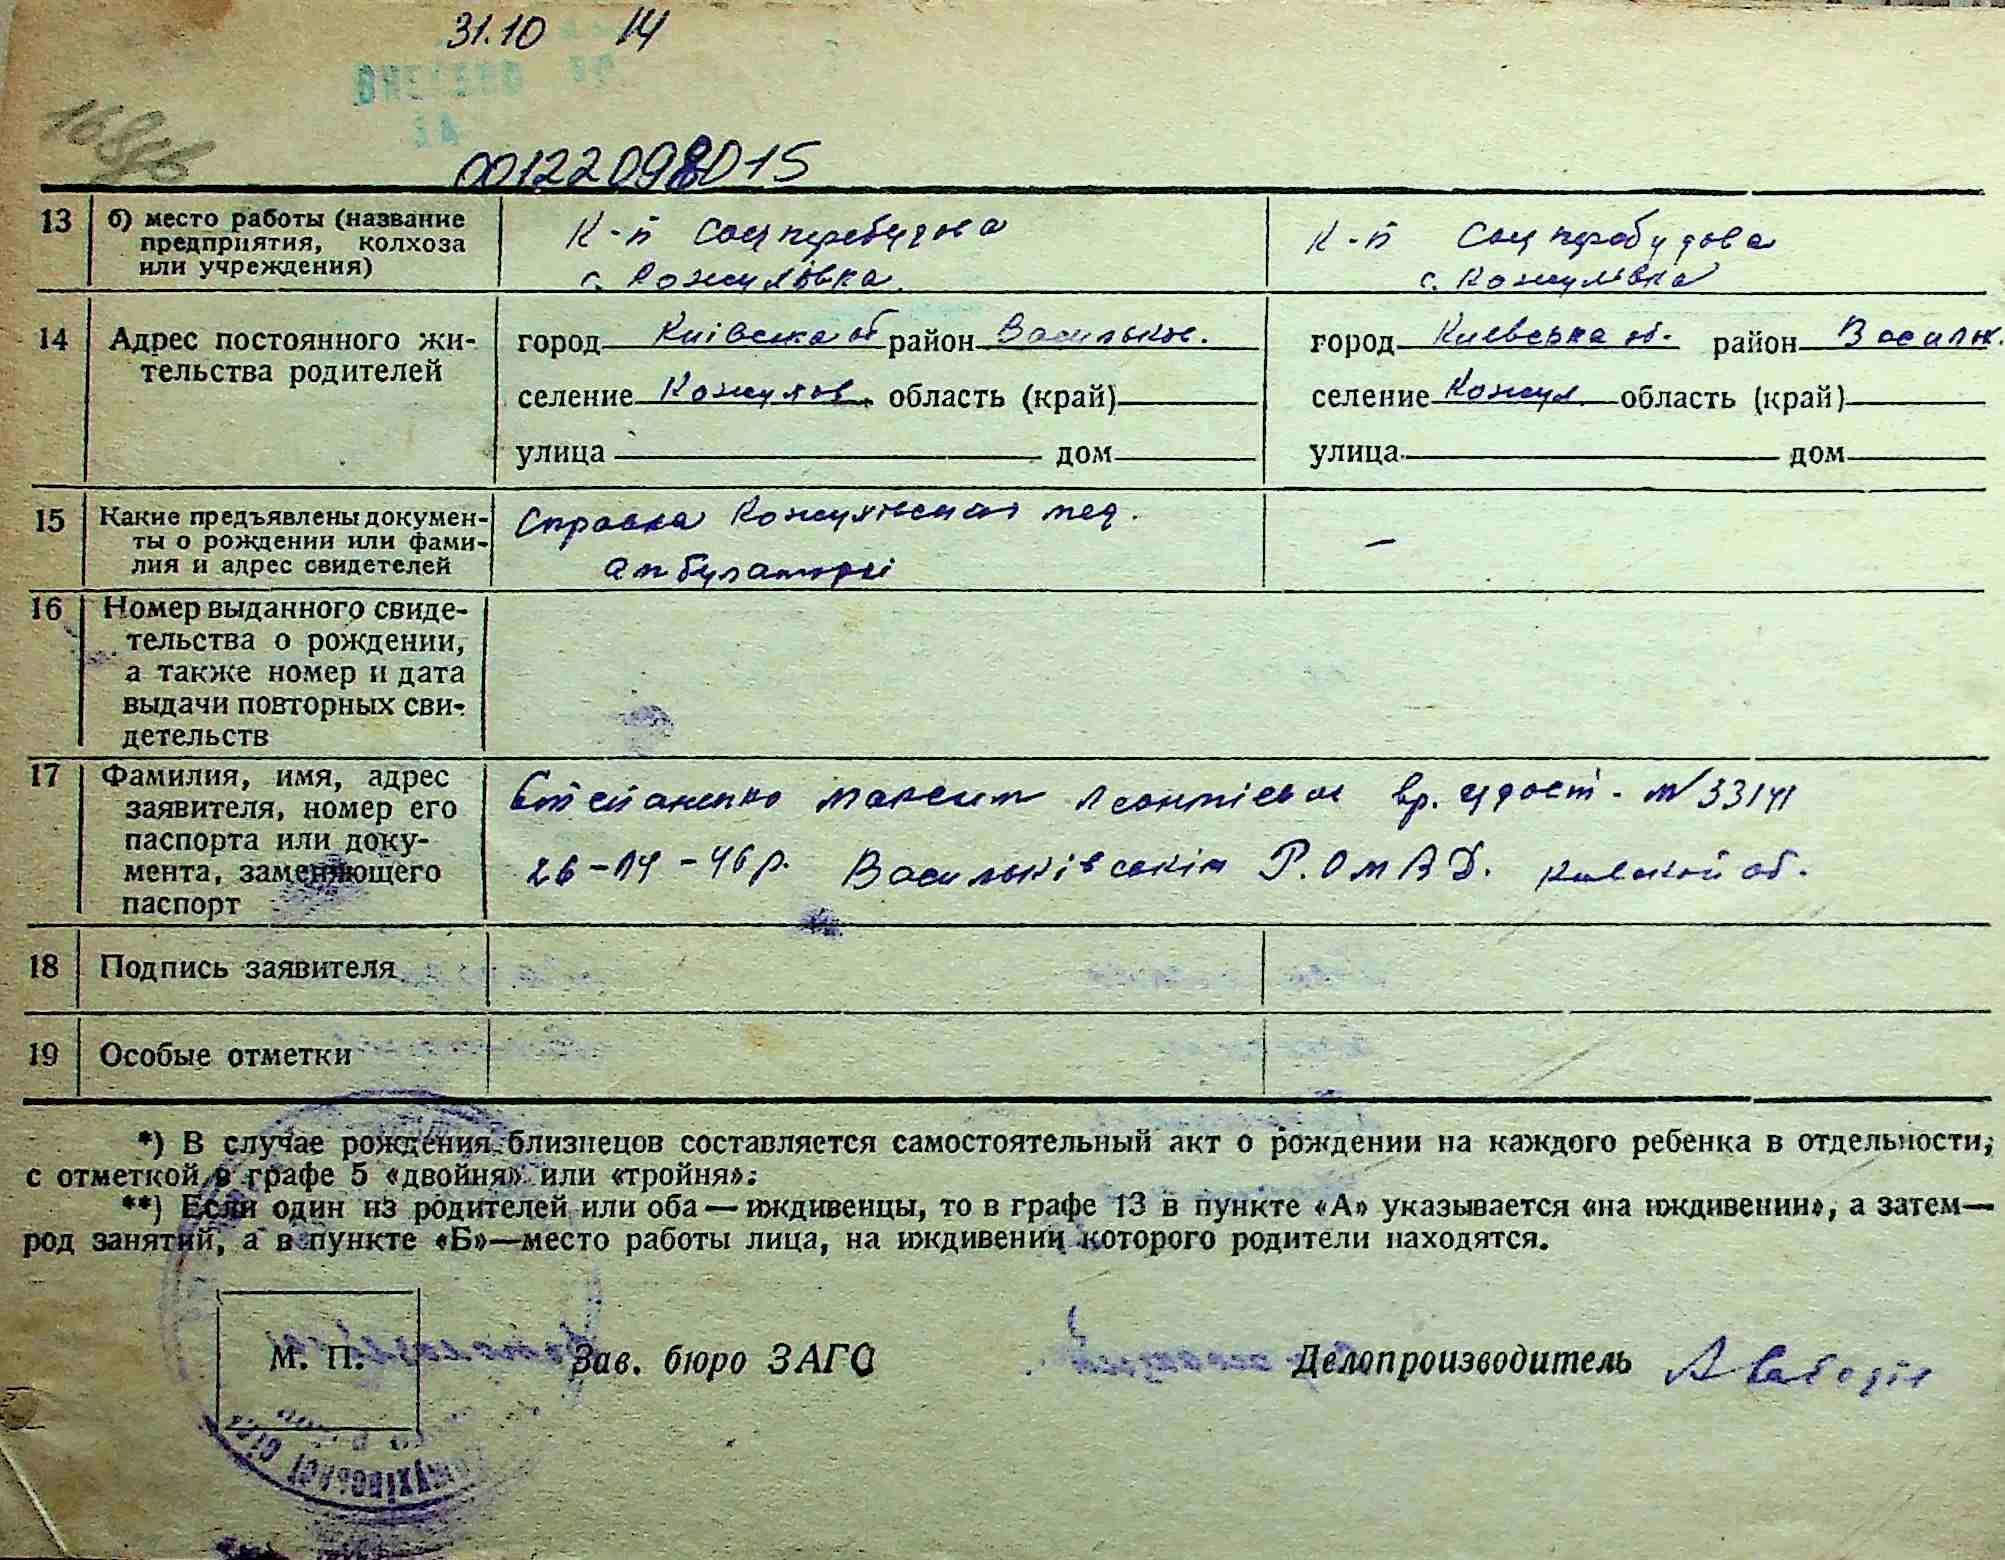 31.10 14
00122098015
13 б) место работы (название предприятия, колхоза или учреждения)
К-п Соцперебудова
с. Кожухівка
К-п Соцперебудова
с. Кожухівка
14 Адрес постоянного жи-
тельства родителей
город Київська об район Васильков.
селение Кожухов. область (край)
улица дом
город Киевська об. район Васильк.
селение Кожух. область (край)
улица дом
15 Какие предъявлены докумен-
ты о рождении или фами-
лия и адрес свидетелей
Справка Кожухівської мед.
амбулаторії
–
16 Номер выданного свиде-
тельства о рождении,
а также номер и дата
выдачи повторных сви-
детельств
17 Фамилия, имя, адрес
заявителя, номер его
паспорта или доку-
мента, заменяющего
паспорт
Степаненко Максим Леонтієвич вр. удост. № 33141
26-14-46р. Васильківським Р.О.М.В.Д. об.
18 Подпись заявителя
19 Особые отметки
*) В случае рождения близнецов составляется самостоятельный акт о рождении на каждого ребенка в отдельности,
с отметкой в графе 5 «двойня» или «тройня».
**) Если один из родителей или оба — иждивенцы, то в графе 13 в пункте «А» указывается «на иждивении», а затем—
род занятий, а в пункте «Б»—место работы лица, на иждивении которого родители находятся.
М. П. Зав. бюро ЗАГС Делопроизводитель